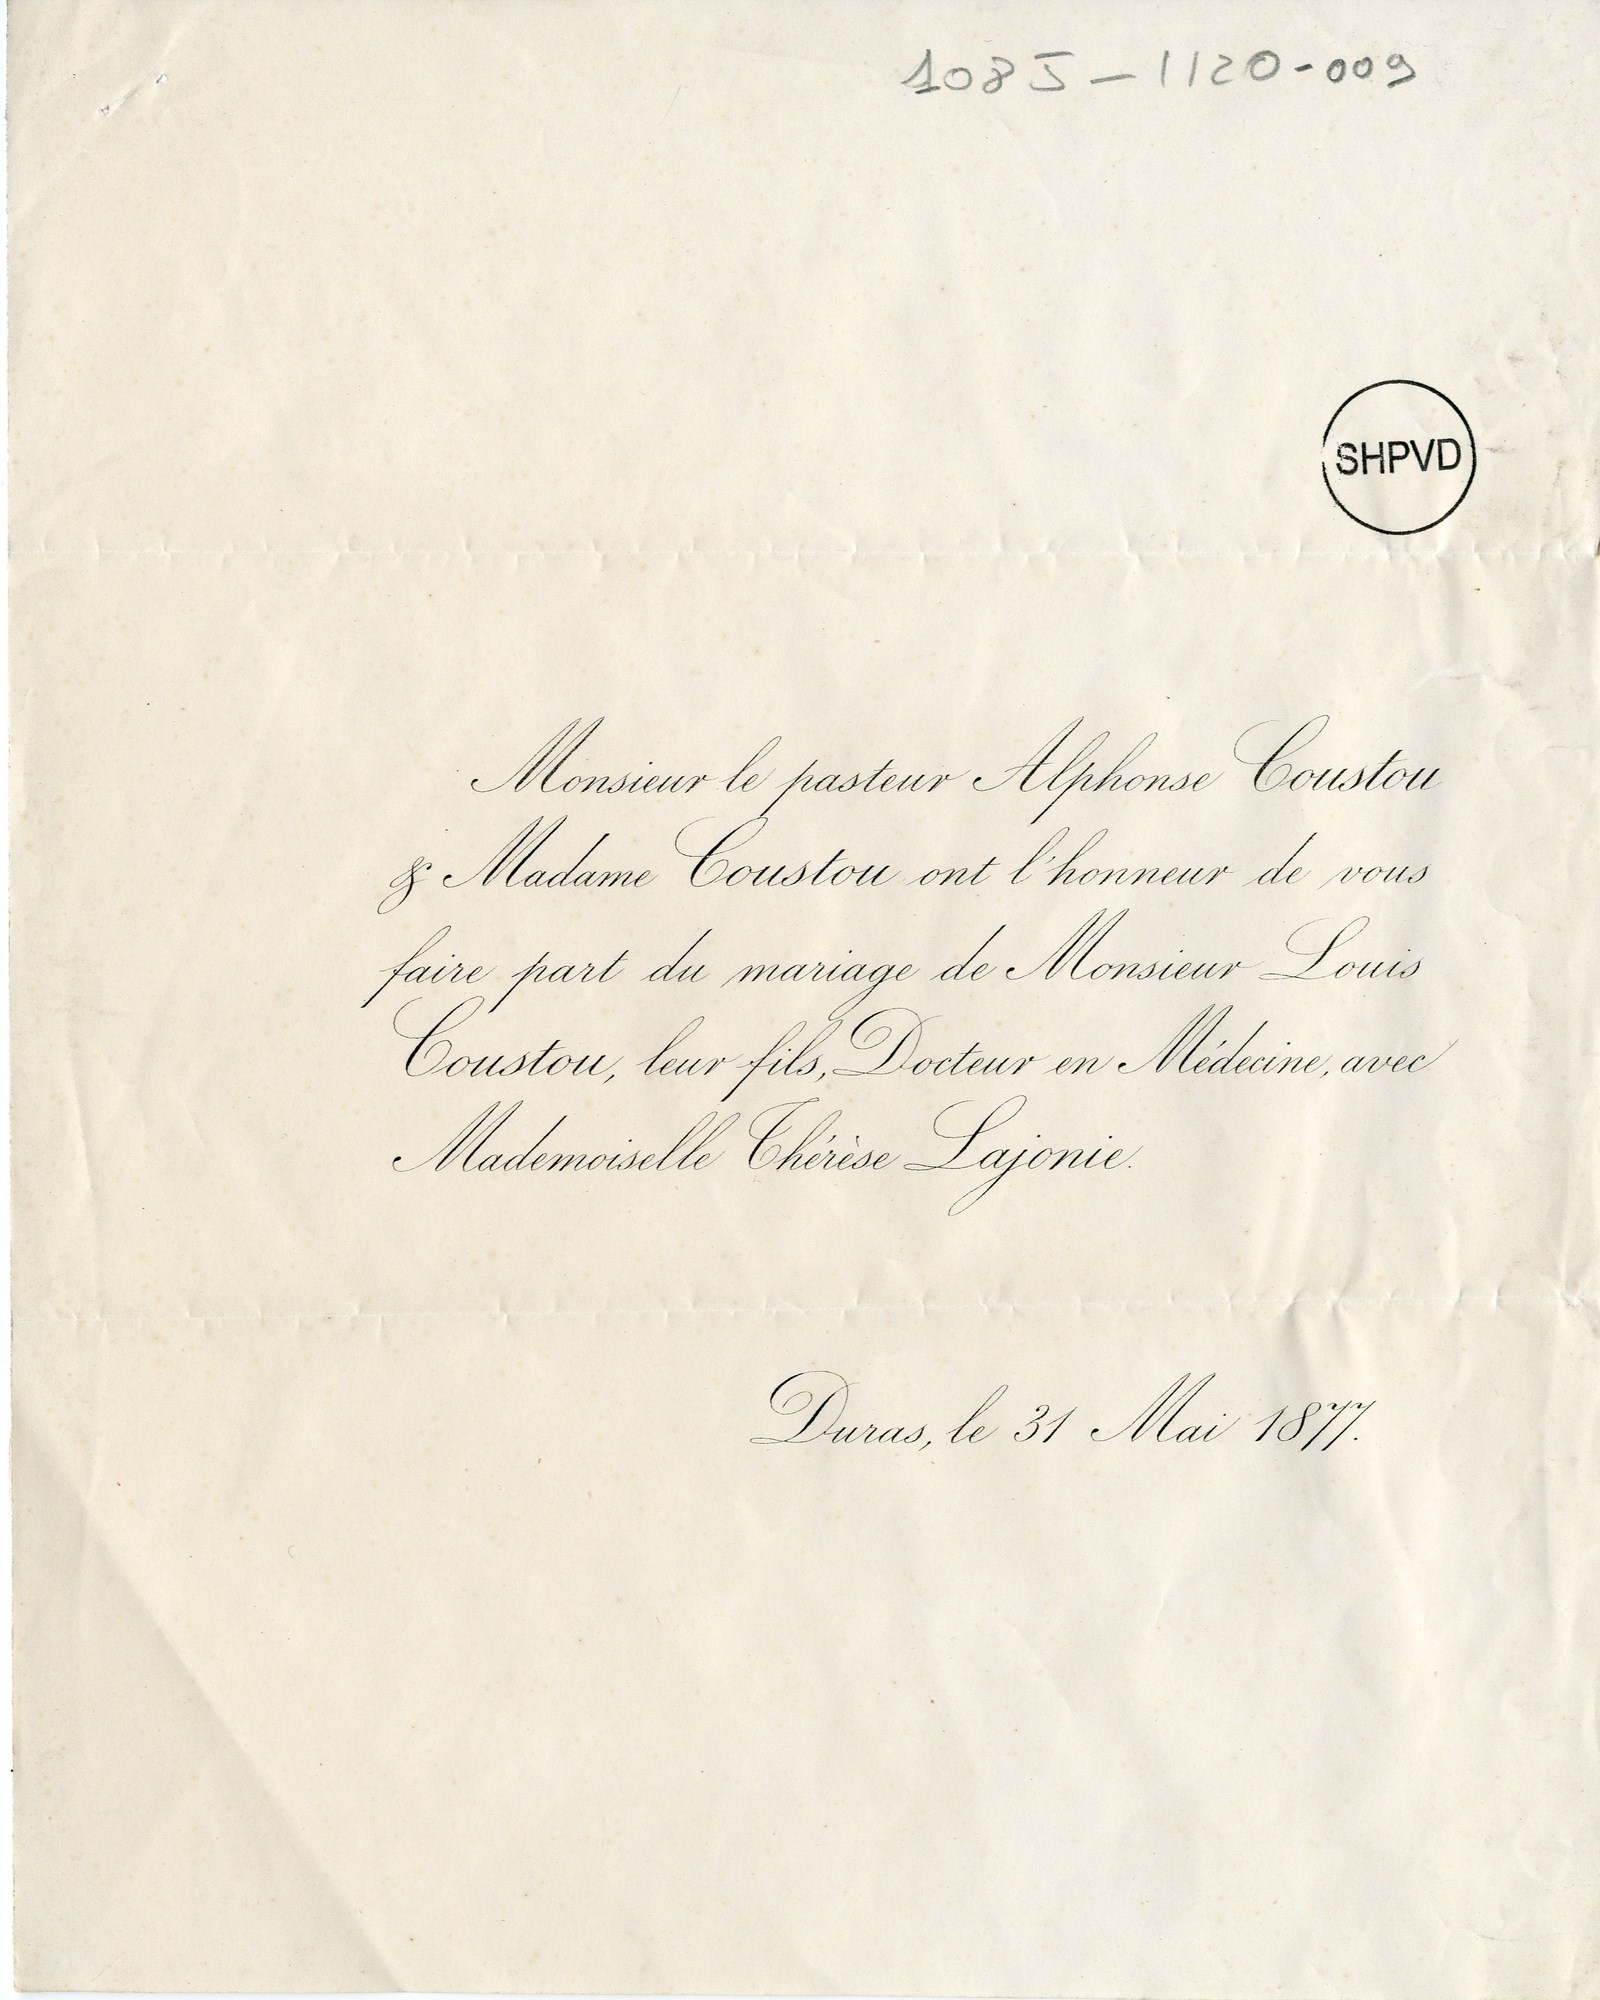 108J-1120-009
SHPVD
Monsieur le pasteur Alphonse Coustou
& Madame Coustou ont l'honneur de vous
faire part du mariage de Monsieur Louis
Coustou, leur fils, Docteur en Médecine, avec
Mademoiselle Thérèse Lajonie.
Duras, le 31 Mai 1877.